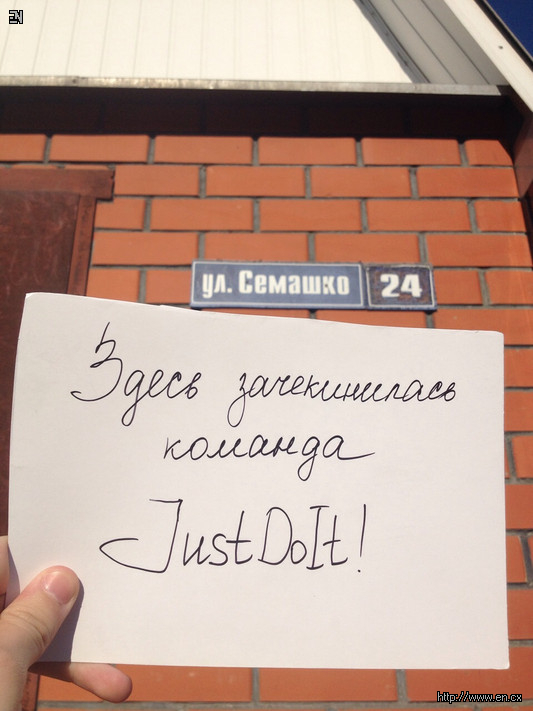 EN
ул. Семашко 24
Здесь зачекинилась
команда
JustDoIt!
http://www.en.cx